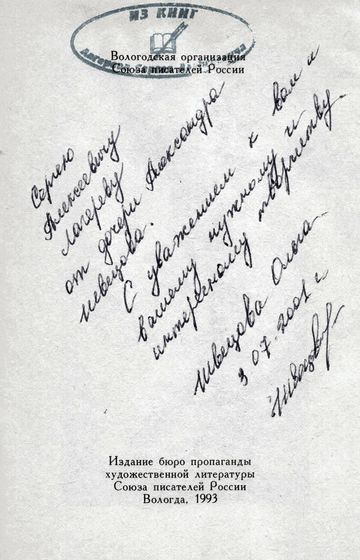 ИЗ КНИГ
Вологодская организация
Союза писателей России
Сергею
Алексеевичу
Лагереву
от дочери Александра
Швецова.
С уважением к вам и
вашему нужному и
интересному творчеству.
Швецова Ольга
3 07. 2001 г
Издание бюро пропаганды
художественной литературы
Союза писателей России
Вологда, 1993